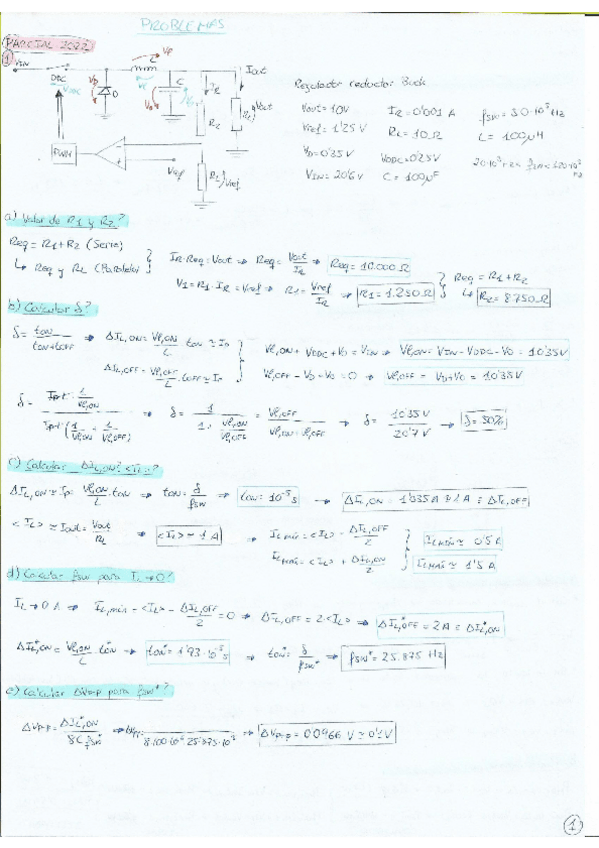 PROBLEMAS
PARCIAL 2022
1
VIN
VODC
VD
D
L
VL
C
Vo
IR
R2
RL
Vout
Iout
PWM
Vref
R1
Vref
Regulador reductor Buck
Vout=10V IR=0'001 A fsw=50·10³ Hz
Vref=1'25V RL=10Ω L=100μH
VD=0'35V VODC=0'25V
VIN=20'6V C=100μF
a) Valor de R1 y R2?
Req = R1+R2 (Serie)
↳ Req y RL (Paralelo)
IR·Req=Vout ⇒ Req=Vout/IR ⇒ Req=10.000Ω
V1=R1·IR=Vref ⇒ R1=Vref/IR ⇒ R1=1.250Ω
Req = R1+R2
↳ R2=8750Ω
b) Calcular δ?
δ= ton/(ton+toff) ⇒ ΔIL,ON= VL,ON/L ton ≃ Ip
ΔIL,OFF= VL,OFF/L · toff ≃ Ip
VL,ON+VODC+Vo=VIN ⇒ VL,ON=VIN-VODC-Vo=10'35V
VL,OFF-VD-Vo=0 ⇒ VL,OFF=VD+Vo=10'35V
⇒ δ= VL,OFF/(VL,ON+VL,OFF) ⇒ δ= 10'35V/20'7V ⇒ δ=50%
c) Calcular ΔIL,ON? <IL>?
ΔIL,ON≃Ip= VL,ON/L ·ton ⇒ ton= δ/fsw ⇒ ton=10⁻⁵s ⇒ ΔIL,ON=1'035A≃1A=ΔIL,OFF
<IL>≃Iout= Vout/RL ⇒ <IL>≃1A ⇒ ILmin=<IL>- ΔIL,OFF/2
ILmin≃0'5A
ILmáx=<IL>+ ΔIL,ON/2
ILmáx≃1'5A
d) Calcular fsw para IL→0?
IL→0 A ⇒ IL,min=<IL>- ΔIL,OFF/2=0 ⇒ ΔIL,OFF=2·<IL> ⇒ ΔIL,OFF*=2A=ΔIL,ON*
ΔIL,ON*= VL,ON/L ·ton* ⇒ ton*=1'93·10⁻⁵s ⇒ ton*= δ/fsw* ⇒ fsw*=25.875 Hz
e) Calcular ΔVp-p para fsw*?
ΔVp-p= ΔIL,ON*/(8C·fsw*) ⇒ ΔVp-p=0'0966 V≃0'1V
1